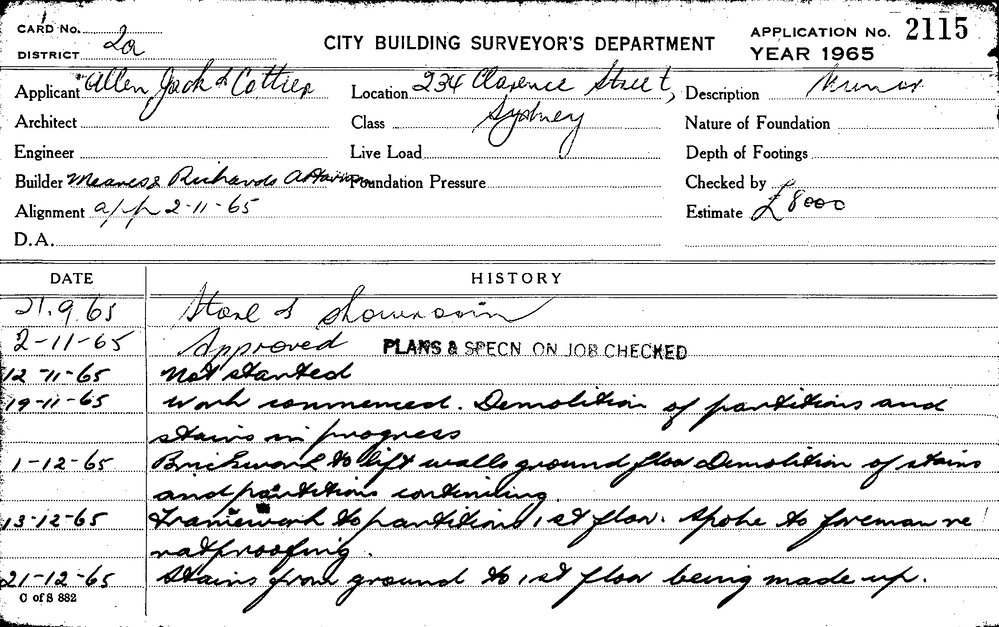 CARD No.
DISTRICT 2a
CITY BUILDING SURVEYOR'S DEPARTMENT
APPLICATION No. 2115
YEAR 1965
Applicant Allen Jack & Cottier Location 234 Clarence Street, Description Minor
Architect Class Sydney Nature of Foundation
Engineer Live Load Depth of Footings
Builder Meares & Richards Foundation Pressure Checked by
Alignment app 2-11-65 Estimate £8000
D.A.
DATE HISTORY
21.9.65 Store & showroom
2-11-65 Approved PLANS & SPECN ON JOB CHECKED
12-11-65 Not started
19-11-65 Work commenced. Demolition of partitions and
stairs in progress
1-12-65 Brickwork to lift walls ground floor Demolition of stairs
and partitions continuing.
13-12-65 Framework to partitions 1st floor. Spoke to foreman re
ratproofing.
21-12-65 Stairs from ground to 1st floor being made up.
C of S 882